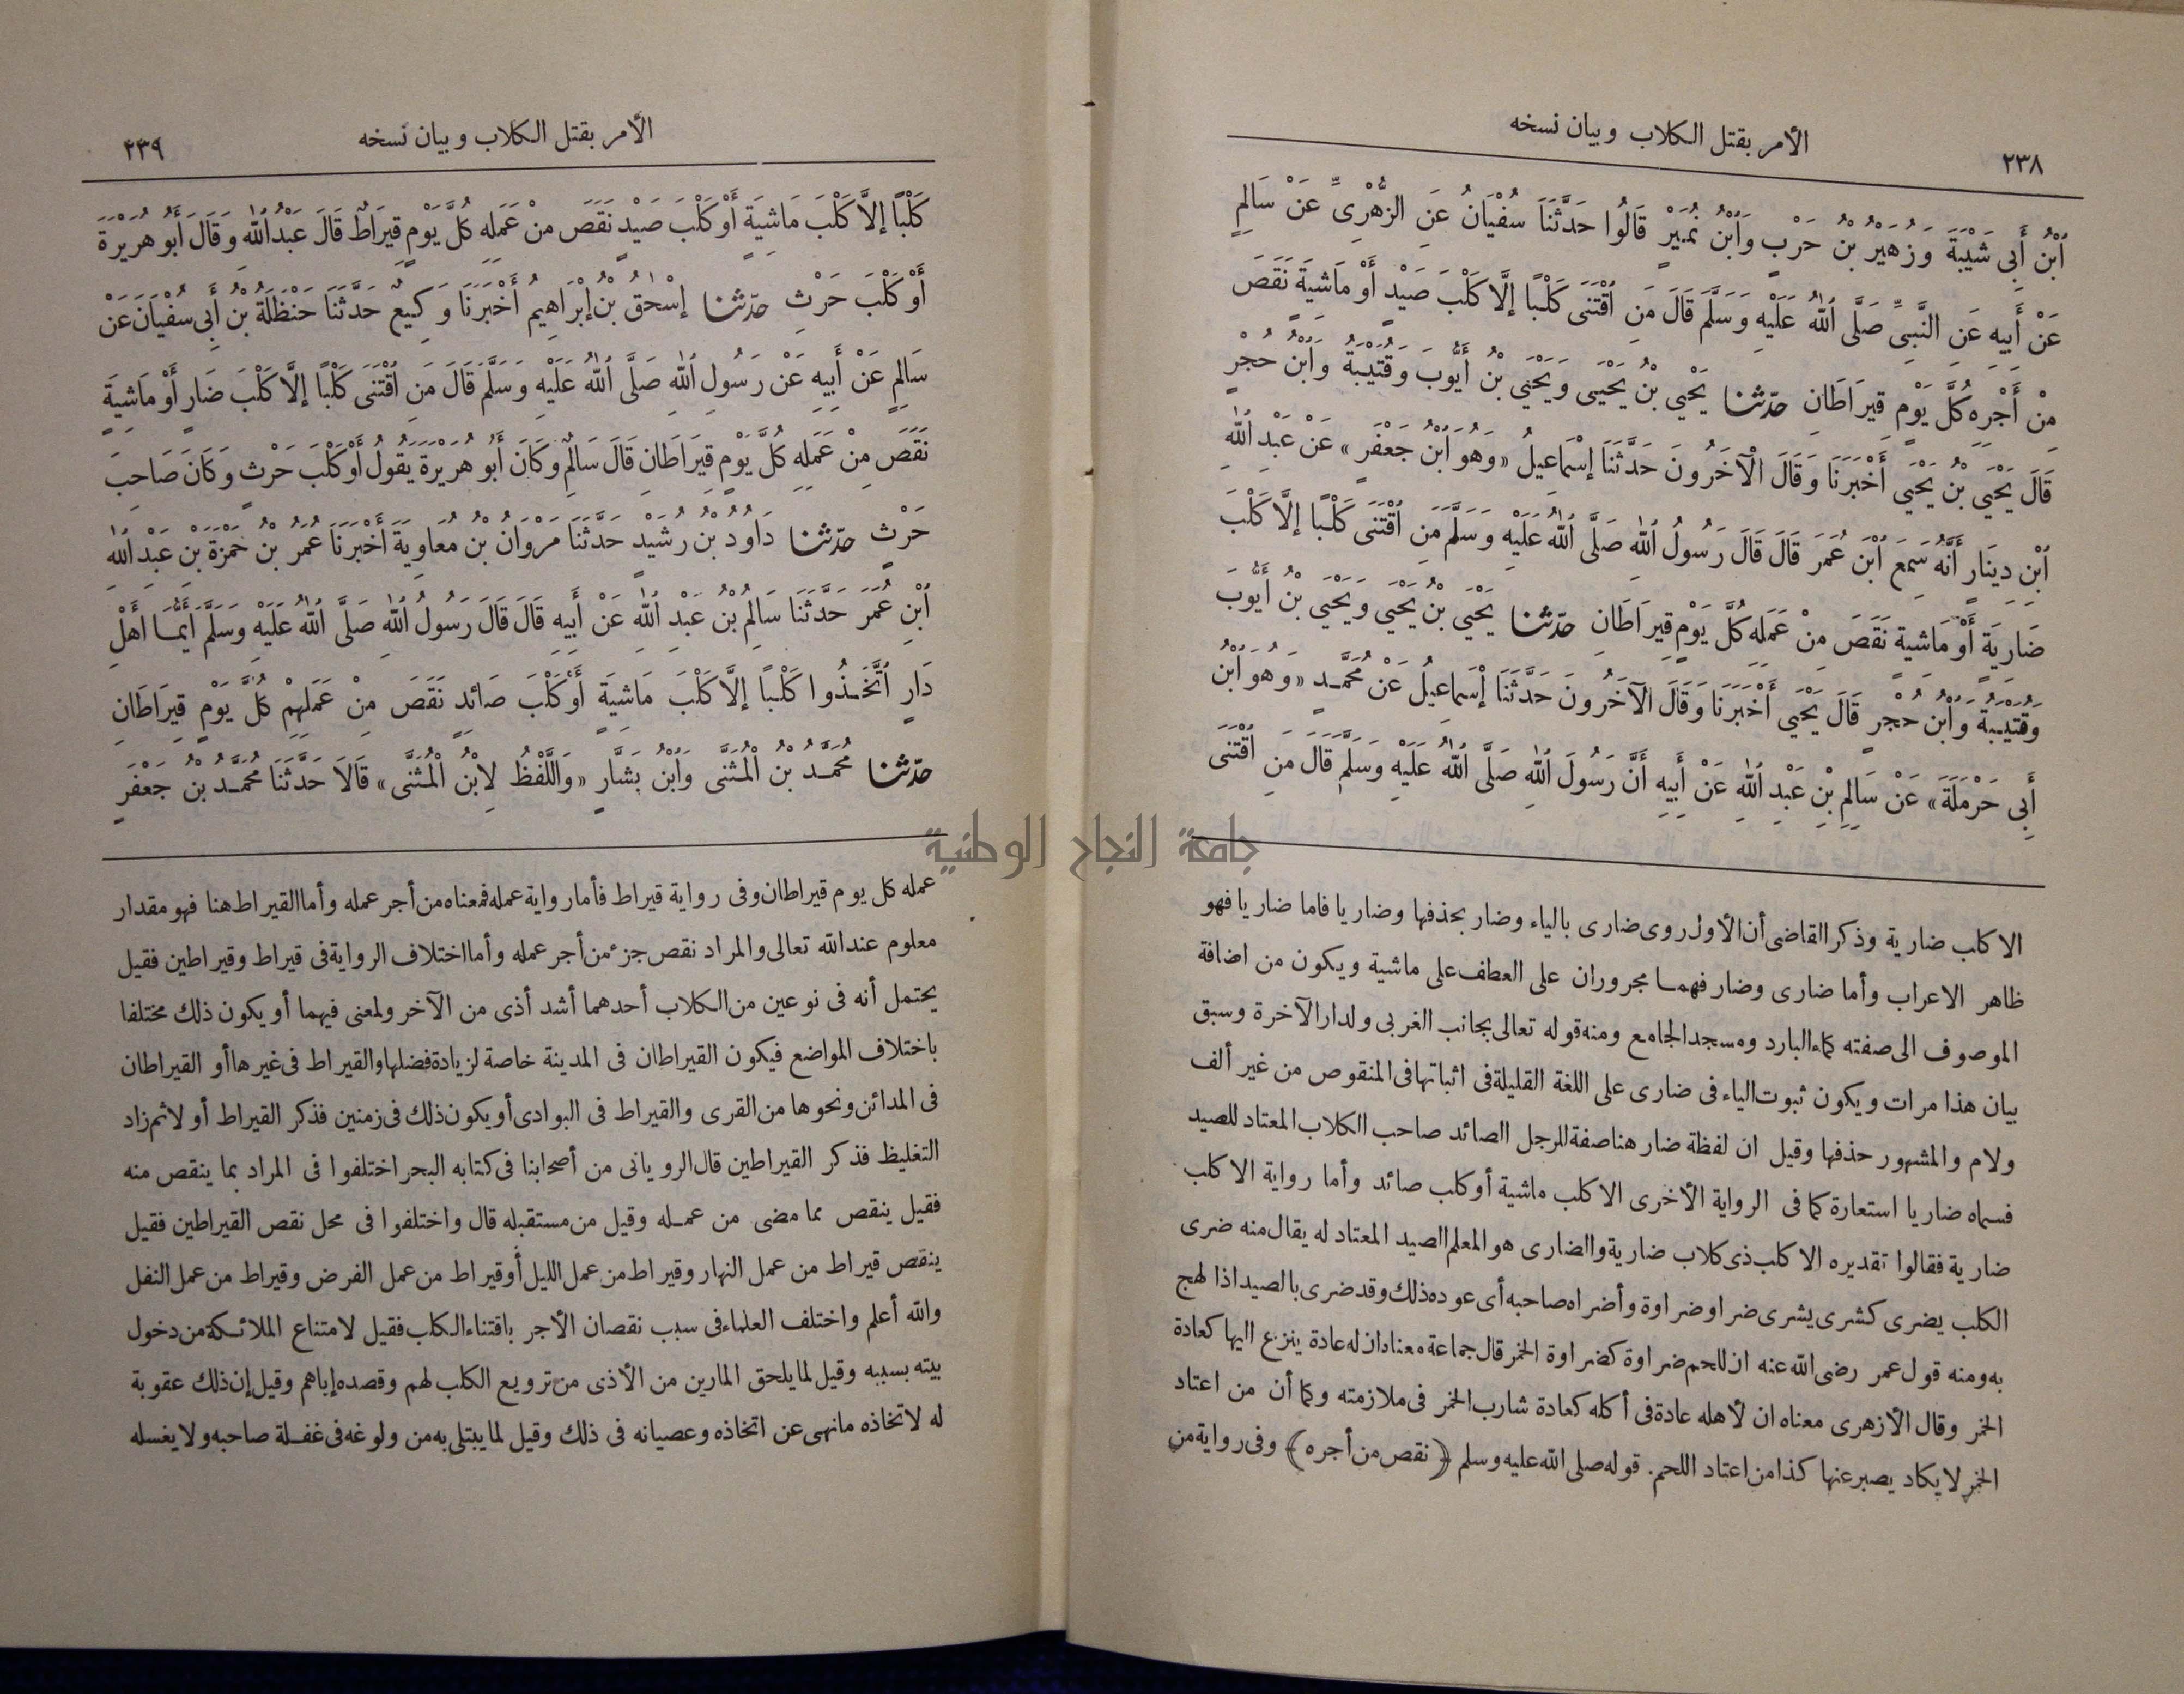 ٢٣٨
الأمر بقتل الكلاب وبيان نسخه
ٱبْنُ أَبِى شَيْبَةَ وَزُهَيْرُ بْنُ حَرْبٍ وَٱبْنُ نُمَيْرٍ قَالُوا حَدَّثَنَا سُفْيَانُ عَنِ الزُّهْرِىِّ عَنْ سَالِمٍ
عَنْ أَبِيهِ عَنِ النَّبِىِّ صَلَّى ٱللهُ عَلَيْهِ وَسَلَّمَ قَالَ مَنِ ٱقْتَنَى كَلْبًا إلَّا كَلْبَ صَيْدٍ أَوْ مَاشِيَةٍ نَقَصَ
مِنْ أَجْرِهِ كُلَّ يَوْمٍ قِيرَاطَانِ حدّثنا يَحْيَى بْنُ يَحْيَى وَيَحْيَى بْنُ أَيُّوبَ وَقُتَيْبَةُ وَٱبْنُ حُجْرٍ
قَالَ يَحْيَى بْنُ يَحْيَى أَخْبَرَنَا وَقَالَ الْآخَرُونَ حَدَّثَنَا إسْمَاعِيلُ «وَهُوَ ٱبْنُ جَعْفَرٍ» عَنْ عَبْدِ ٱللهِ
ٱبْنِ دِينَارٍ أَنَّهُ سَمِعَ ٱبْنَ عُمَرَ قَالَ قَالَ رَسُولُ ٱللهِ صَلَّى ٱللهُ عَلَيْهِ وَسَلَّمَ مَنِ ٱقْتَنَى كَلْبًا إلَّا كَلْبَ
ضَارِيَةٍ أَوْ مَاشِيَةٍ نَقَصَ مِنْ عَمَلِهِ كُلَّ يَوْمٍ قِيرَاطَانِ حدّثنا يَحْيَى بْنُ يَحْيَى وَيَحْيَى بْنُ أَيُّوبَ
وَقُتَيْبَةُ وَٱبْنُ حُجْرٍ قَالَ يَحْيَى أَخْبَرَنَا وَقَالَ الْآخَرُونَ حَدَّثَنَا إسْمَاعِيلُ عَنْ مُحَمَّدٍ «وَهُوَ ٱبْنُ
أَبِى حَرْمَلَةَ» عَنْ سَالِمِ بْنِ عَبْدِ ٱللهِ عَنْ أَبِيهِ أَنَّ رَسُولَ ٱللهِ صَلَّى ٱللهُ عَلَيْهِ وَسَلَّمَ قَالَ مَنِ ٱقْتَنَى
الا كلب ضارية وذكر القاضى أن الأول روى ضارى بالياء وضار بحذفها وضاريا فاما ضاريا فهو
ظاهر الاعراب وأما ضارى وضار فهما مجروران على العطف على ماشية ويكون من اضافة
الموصوف الى صفته كماء البارد ومسجد الجامع ومنه قوله تعالى بجانب الغربى ولدار الآخرة وسبق
بيان هذا مرات ويكون ثبوت الياء فى ضارى على اللغة القليلة فى اثباتها فى المنقوص من غير ألف
ولام والمشهور حذفها وقيل ان لفظة ضار هنا صفة للرجل الصائد صاحب الكلاب المعتاد للصيد
فسماه ضاريا استعارة كما فى الرواية الأخرى الا كلب ماشية أو كلب صائد وأما رواية الا كلب
ضارية فقالوا تقديره الا كلب ذى كلاب ضارية والضارى هو المعلم الصيد المعتاد له يقال منه ضرى
الكلب يضرى كشرى يشرى ضرا وضراوة وأضراه صاحبه أى عوده ذلك وقد ضرى بالصيد اذا لهج
به ومنه قول عمر رضى الله عنه ان للحم ضراوة كضراوة الخمر قال جماعة معناه ان له عادة ينزع اليها كعادة
الخمر وقال الأزهرى معناه ان لأهله عادة فى أكله كعادة شارب الخمر فى ملازمته وكما أن من اعتاد
الخمر لا يكاد يصبر عنها كذا من اعتاد اللحم. قوله صلى الله عليه وسلم ﴿نقص من أجره﴾ وفى رواية من
الأمر بقتل الكلاب وبيان نسخه
٢٣٩
كَلْبًا إلَّا كَلْبَ مَاشِيَةٍ أَوْ كَلْبَ صَيْدٍ نَقَصَ مِنْ عَمَلِهِ كُلَّ يَوْمٍ قِيرَاطٌ قَالَ عَبْدُ ٱللهِ وَقَالَ أَبُو هُرَيْرَةَ
أَوْ كَلْبَ حَرْثٍ حدّثنا إسْحٰقُ بْنُ إبْرَاهِيمَ أَخْبَرَنَا وَكِيعٌ حَدَّثَنَا حَنْظَلَةُ بْنُ أَبِى سُفْيَانَ عَنْ
سَالِمٍ عَنْ أَبِيهِ عَنْ رَسُولِ ٱللهِ صَلَّى ٱللهُ عَلَيْهِ وَسَلَّمَ قَالَ مَنِ ٱقْتَنَى كَلْبًا إلَّا كَلْبَ ضَارٍ أَوْ مَاشِيَةٍ
نَقَصَ مِنْ عَمَلِهِ كُلَّ يَوْمٍ قِيرَاطَانِ قَالَ سَالِمٌ وَكَانَ أَبُو هُرَيْرَةَ يَقُولُ أَوْ كَلْبَ حَرْثٍ وَكَانَ صَاحِبَ
حَرْثٍ حدّثنا دَاوُدُ بْنُ رُشَيْدٍ حَدَّثَنَا مَرْوَانُ بْنُ مُعَاوِيَةَ أَخْبَرَنَا عُمَرُ بْنُ حَمْزَةَ بْنِ عَبْدِ ٱللهِ
ٱبْنِ عُمَرَ حَدَّثَنَا سَالِمُ بْنُ عَبْدِ ٱللهِ عَنْ أَبِيهِ قَالَ قَالَ رَسُولُ ٱللهِ صَلَّى ٱللهُ عَلَيْهِ وَسَلَّمَ أَيُّمَا أَهْلِ
دَارٍ ٱتَّخَذُوا كَلْبًا إلَّا كَلْبَ مَاشِيَةٍ أَوْ كَلْبَ صَائِدٍ نَقَصَ مِنْ عَمَلِهِمْ كُلَّ يَوْمٍ قِيرَاطَانِ
حدّثنا مُحَمَّدُ بْنُ الْمُثَنَّى وَٱبْنُ بَشَّارٍ «وَاللَّفْظُ لِابْنِ الْمُثَنَّى» قَالَا حَدَّثَنَا مُحَمَّدُ بْنُ جَعْفَرٍ
عمله كل يوم قيراطان وفى رواية قيراط فأما رواية عمله فمعناه من أجر عمله وأما القيراط هنا فهو مقدار
معلوم عند الله تعالى والمراد نقص جزء من أجر عمله وأما اختلاف الرواية فى قيراط وقيراطين فقيل
يحتمل أنه فى نوعين من الكلاب أحدهما أشد أذى من الآخر ولمعنى فيهما أو يكون ذلك مختلفا
باختلاف المواضع فيكون القيراطان فى المدينة خاصة لزيادة فضلها والقيراط فى غيرها أو القيراطان
فى المدائن ونحوها من القرى والقيراط فى البوادى أو يكون ذلك فى زمنين فذكر القيراط أولا ثم زاد
التغليظ فذكر القيراطين قال الرويانى من أصحابنا فى كتابه البحر اختلفوا فى المراد بما ينقص منه
فقيل ينقص مما مضى من عمله وقيل من مستقبله قال واختلفوا فى محل نقص القيراطين فقيل
ينقص قيراط من عمل النهار وقيراط من عمل الليل أو قيراط من عمل الفرض وقيراط من عمل النفل
والله أعلم واختلف العلماء فى سبب نقصان الأجر باقتناء الكلب فقيل لامتناع الملائكة من دخول
بيته بسببه وقيل لما يلحق المارين من الأذى من ترويع الكلب لهم وقصده إياهم وقيل إن ذلك عقوبة
له لاتخاذه ما نهى عن اتخاذه وعصيانه فى ذلك وقيل لما يبتلى به من ولوغه فى غفلة صاحبه ولا يغسله
جامعة النجاح الوطنية